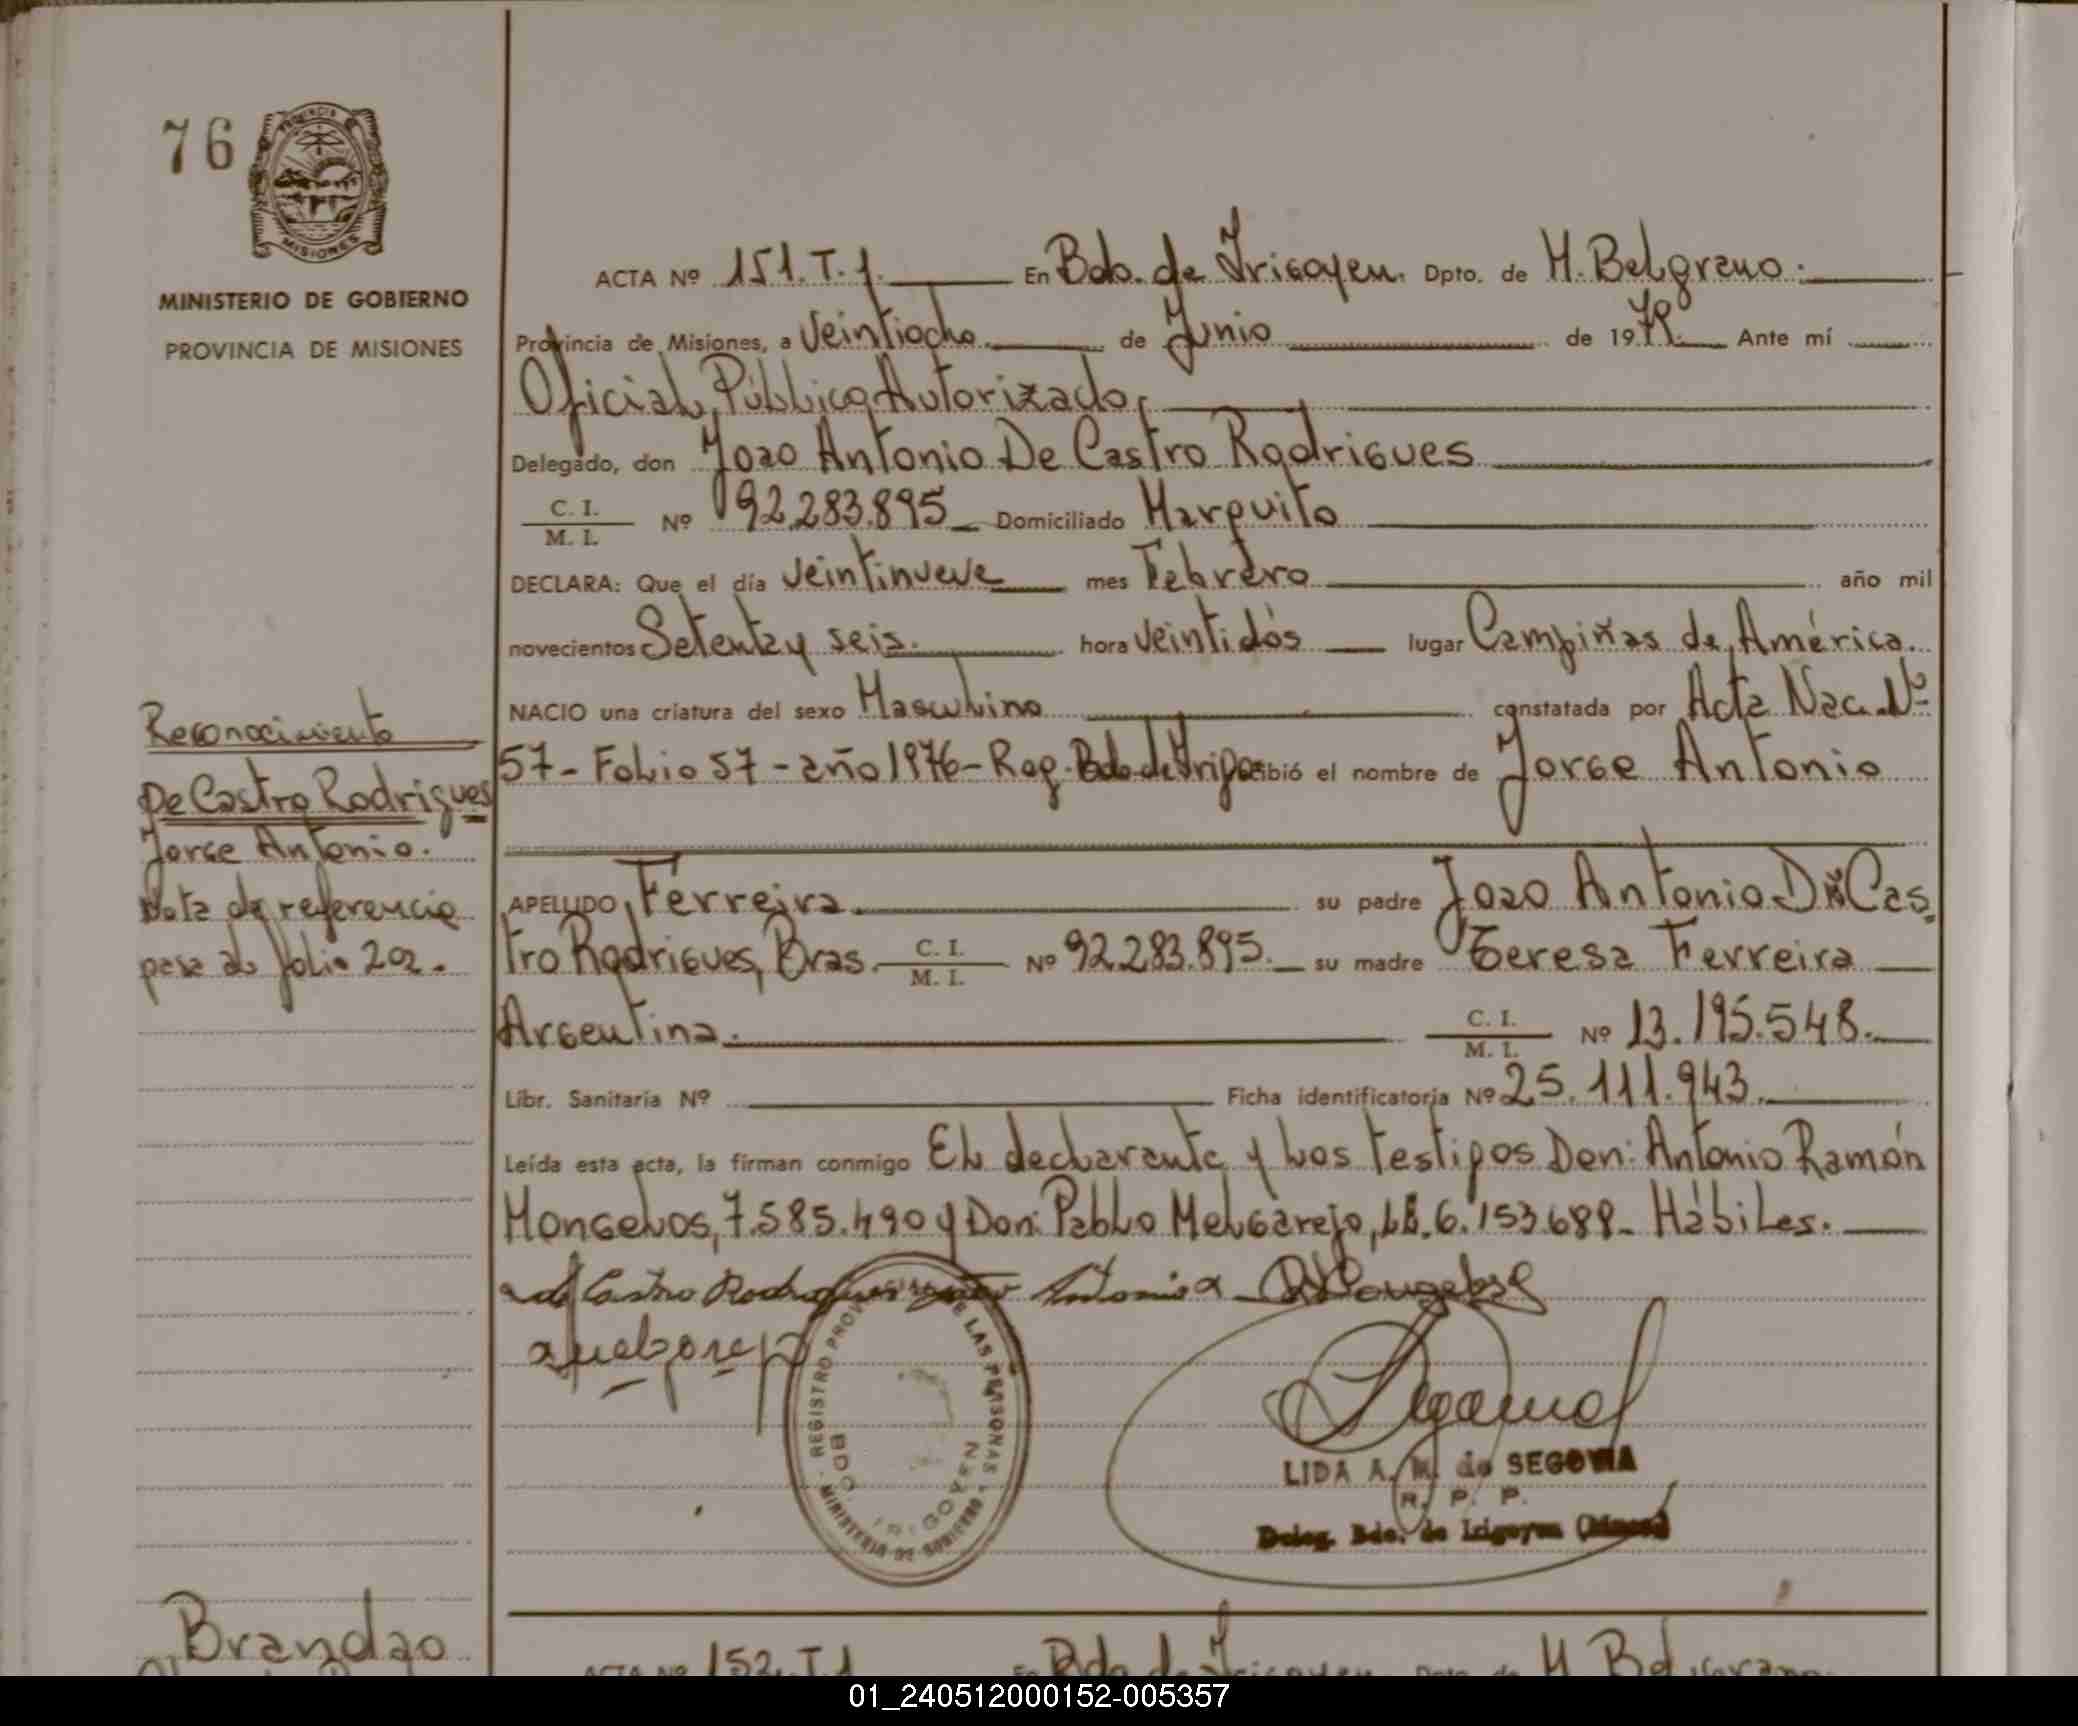 76
PROVINCIA DE
MISIONES
MINISTERIO DE GOBIERNO
PROVINCIA DE MISIONES
ACTA Nº 151.T.1. En Bdo. de Irigoyen. Dpto. de M. Belgrano.
Provincia de Misiones, a Veintiocho de Junio de 1979. Ante mí
Oficial Público Autorizado,
Delegado, don Joao Antonio De Castro Rodrigues
C. I.
M. I. Nº 92.283.895 Domiciliado Marquito
DECLARA: Que el día Veintinueve mes Febrero año mil
novecientos Setenta y seis. hora Veintidós lugar Campiñas de América.
NACIO una criatura del sexo Masculino constatada por Acta Nac. Nº
57 - Folio 57 - año 1976 - Reg. Bdo. de Irigo cibió el nombre de Jorge Antonio
APELLIDO Ferreira su padre Joao Antonio De Cas-
tro Rodrigues, Bras. C. I. M. I. Nº 92.283.895. su madre Teresa Ferreira
Argentina. C. I. M. I. Nº 13.195.548.
Libr. Sanitaria Nº Ficha identificatoria Nº 25.111.943.
Leída esta acta, la firman conmigo El declarante y los testigos Don: Antonio Ramón
Mongelos, 7.585.490 y Don: Pablo Melgarejo, LE. 6.153.689. Hábiles.
de Castro Rodrigues Antonio
REGISTRO PROVINCIAL DE LAS PERSONAS
BDO. IRIGOYEN
MINISTERIO DE GOBIERNO
LIDA A. M. de SEGOVIA
R. P. P.
Deleg. Bdo. de Irigoyen (Mnes)
Reconocimiento
De Castro Rodrigues
Jorge Antonio.
Nota de referencia
pasa al folio 202.
Brandao
ACTA Nº 152.T.1 En Bdo. de Irigoyen Dpto. de M. Belgrano
01_240512000152-005357